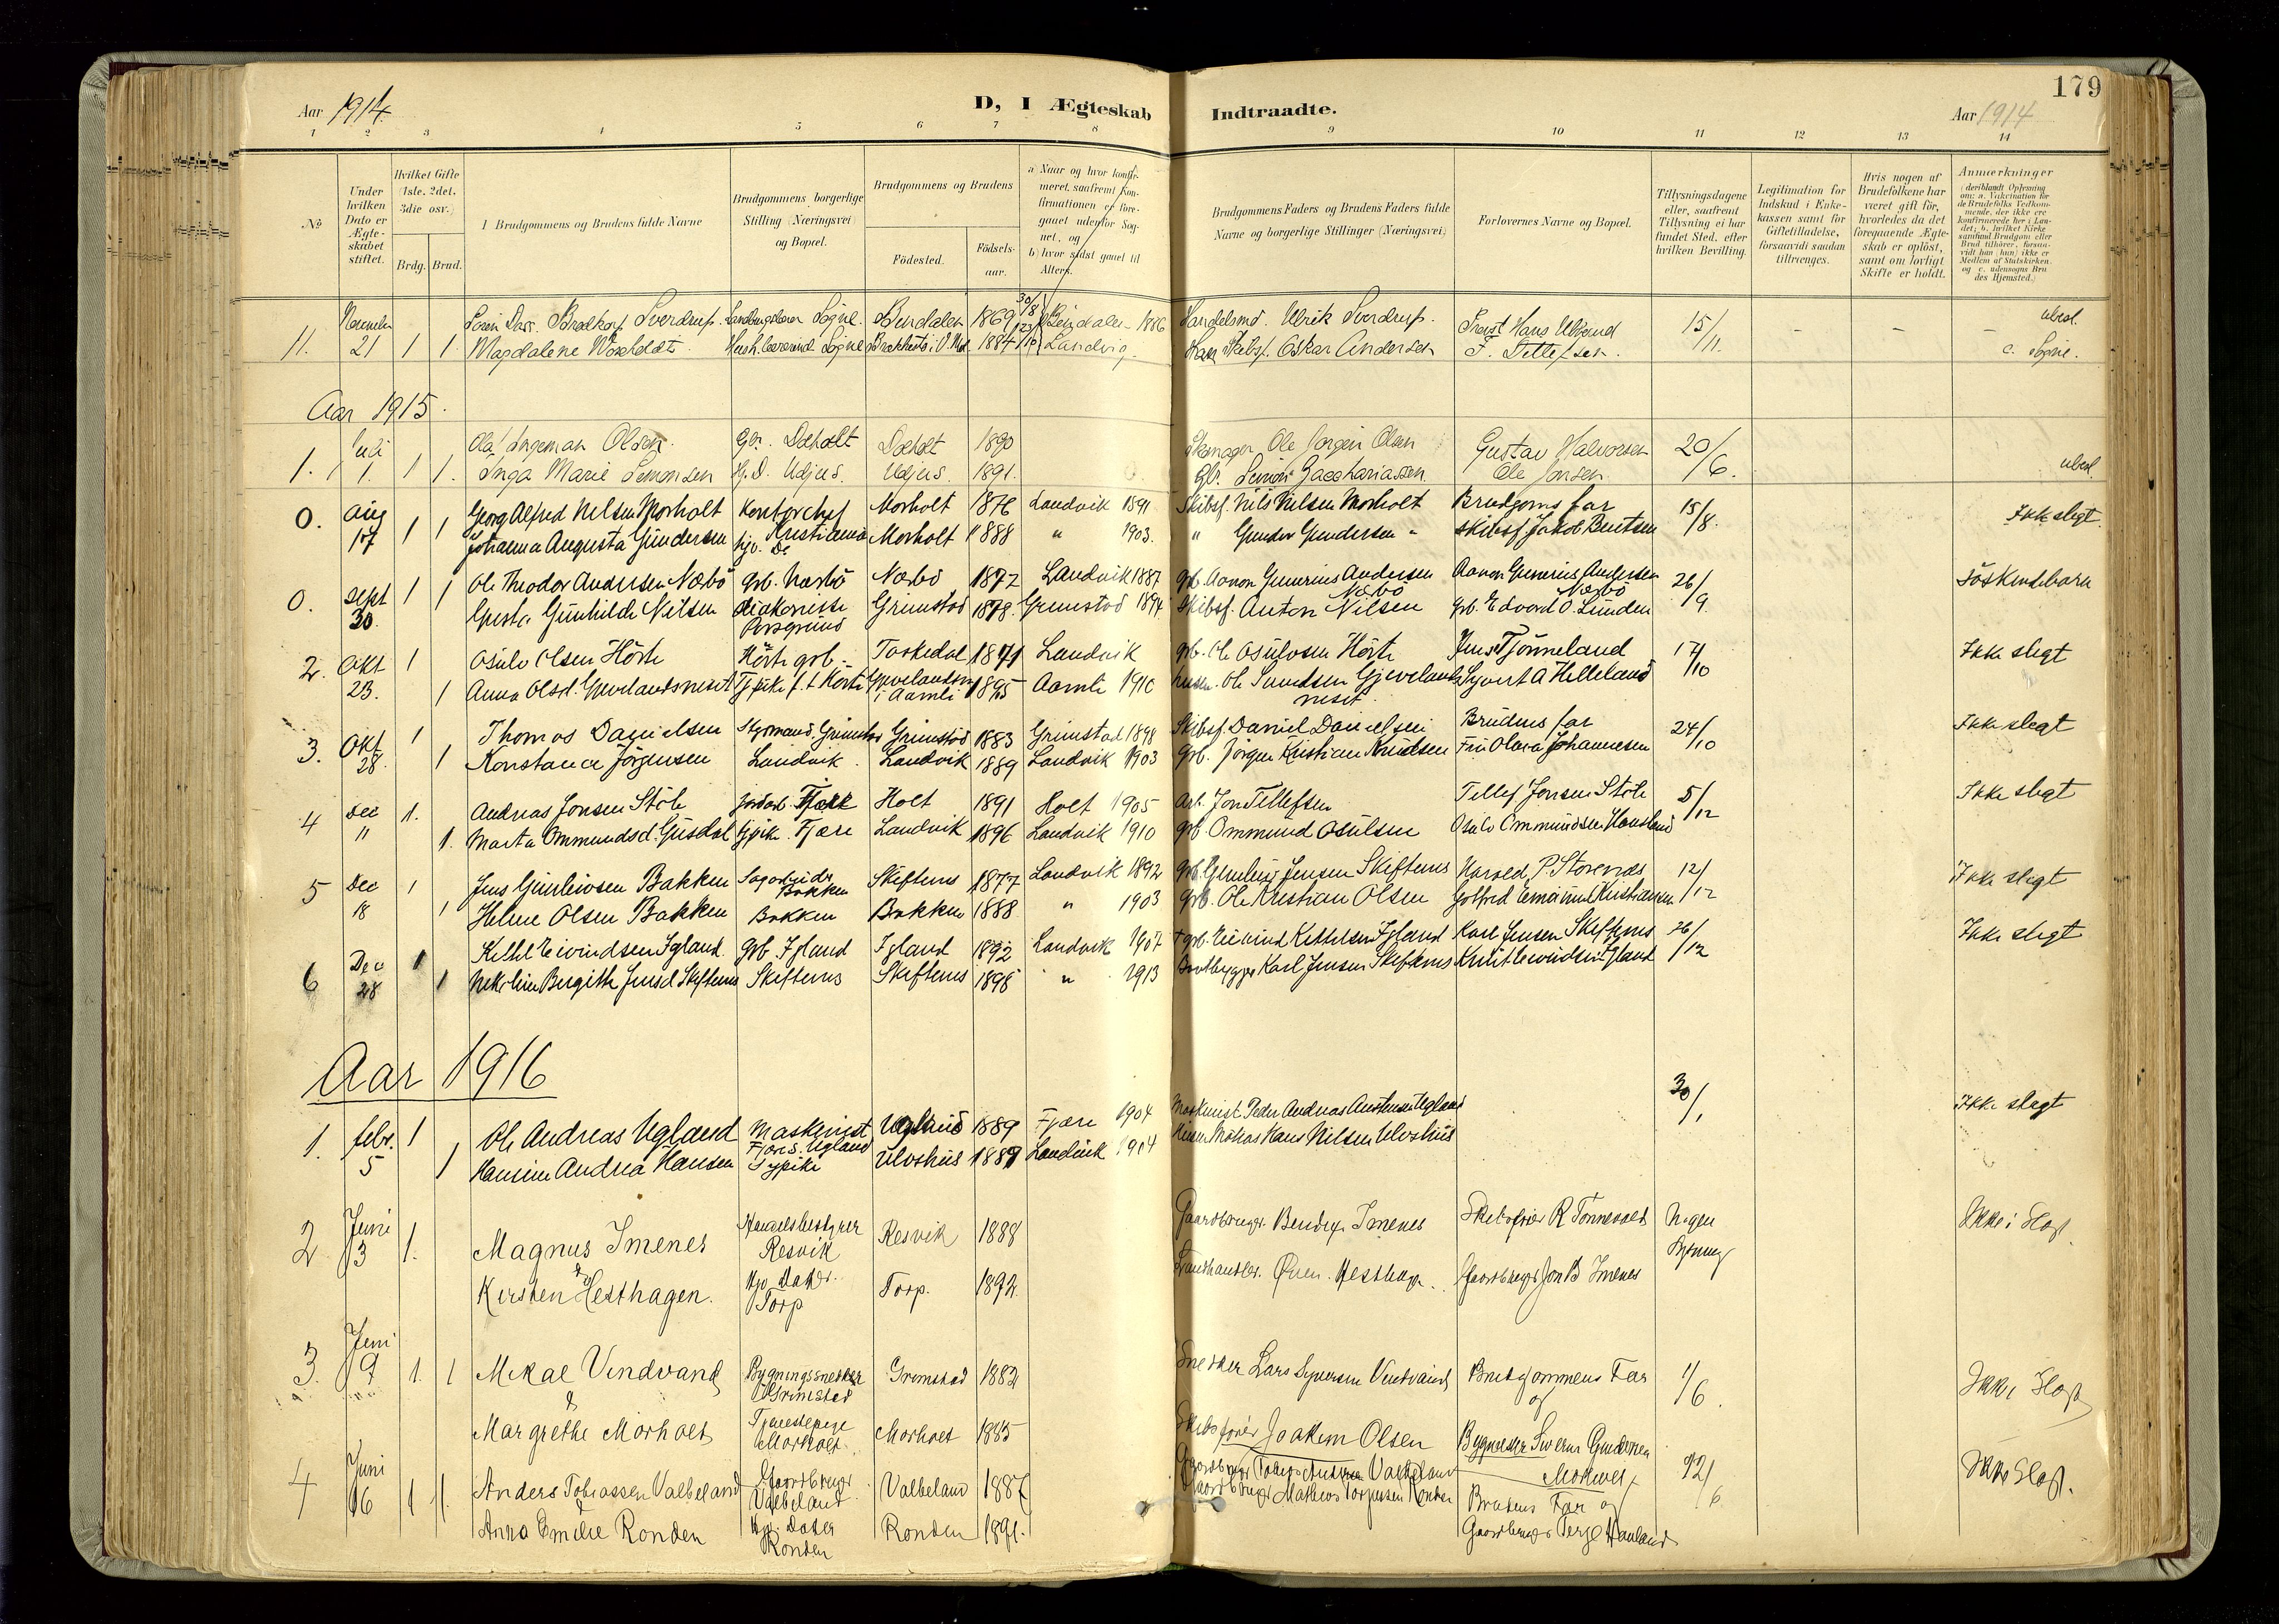 179
Aar 1914
D, I Ægteskab Indtraadte.
Aar 1914
1 2 3 4 5 6 7 8 9 10 11 12 13 14
No
Under hvilken Dato er Ægteskabet stiftet.
Hvilket Gifte (1ste, 2det, 3die osv.)
Brdg. Brud.
1 Brudgommens og Brudens fulde Navne
Brudgommens borgerlige Stilling (Næringsvei) og Bopæl.
Brudgommens og Brudens
Födested.
Födsels-aar.
a) Naar og hvor konfirmeret, saafremt Konfirmationen er foregaaet udenfor Sognet, og
b) hvor sidst gaaet til Alters.
Brudgommens Faders og Brudens Faders fulde Navne og borgerlige Stillinger (Næringsvei)
Forlovernes Navne og Bopæl.
Tillysningsdagene eller, saafremt Tillysning ei har fundet Sted, efter hvilken Bevilling.
Legitimation for Indskud i Enkekassen samt for Giftetilladelse, forsaavidt saadan tiltrænges.
Hvis nogen af Brudefolkene har været gift för, hvorledes da det foregaaende Ægteskab er oplöst, samt om lovligt Skifte er holdt.
Anmærkninger
(deriblandt Oplysning om: a. Vakcination for de Brudefolks Vedkommende, der ikke ere konfirmerede her i Landet; b. hvilket Kirkesamfund Brudgom eller Brud tilhörer, forsaavidt han (hun) ikke er Medlem af Statskirken, og c. udensogns Brudes Hjemsted.)
November Sverdrup. Sögne. Bindalen 1869 Bindalen 1886 Handelsmd. Ulrik Sverdrup. Hans 15/11 - - - ubesl.
11. 21 1 1 Magdalene Sögne 1884 Landvig Skibsf. Oskar Andersen T. Tellefsen. c. Sögne.
Aar 1915.
Juli Ola Ingeman Olsen. Gbr. Dæholt Dæholt 1890 Ole Jørgen Olsen Gustav Halvorsen 20/6.
1. 1. 1 1. Inga Marie Simonsen Hj. D. Udjus. Udjus. 1891. Gbr. Simon Zacchariassen. Ole Jonsen. ubesl.
0. Aug 17 1 1 Georg Alfred Nilsen Morholt Kontorchef Kristiania Morholt 1876 Landvik 1891 Skibsf. Nils Nilsen Morholt Brudgoms far 15/8. Ikke slegt.
Johanna Augusta Gundersen Morholt 1888 " 1903. " Gunder Gundersen " Skibsf Jakob Bentsen
0. Sept 30 1 1 Ole Theodor Andersen Næbö Grb. Næsbö Næsbö 1877 Landvik 1887 Grb. Aanon Gunerius Andersen Næbö Aanon Gunerius Andersen Næsbö 26/9 Söskendebarn
Gunhilde Nilsen diakonisse Porsgrund Grimstad 1878. Grimstad 1894 Skibsf. Anton Nilsen Grb. Edvard O. Lunden
2. Okt 23. 1 Osulv Olsen Hörte Hörte grb. Taskedal 1871 Landvik Grb. Ole Osulvsen Hörte Jens Tjönneland 17/10 Ikke slegt
1 Anna Olsd. Gjevelandsneset i Aamli 1895 Aamli 1910 Ole Sundsen Gjevelandsneset Syvert A Helleland
3. Okt 28. 1 Thomas Danielsen Styrmand, Grimstad Grimstad 1883 Grimstad 1898 Skibsf. Daniel Danielsen Brudens far 24/10 Ikke slegt
1 Konstance Jörgensen Landvik. Landvik 1889 Landvik 1903 Grb. Jörgen Kristian Knudsen Fru Olava Johannesen
4 Dec 11 1. Andreas Jonsen Stöle Fjære Holt 1891 Holt 1905 Arb. Jon Tellefsen Tellef Jonsen Stöle 5/12 Ikke slegt
1. Marta Ommundsd. Gusdal Fjære Landvik 1896 Landvik 1910 Grb Ommund Osulsen Osulv Ommundsen Hausland
5 Dec 18 1 Jens Gunleivsen Bakken Bakken Skiftenes 1877 Landvik 1892 Grb. Gunleiv Jensen Skiftenes Harald P. Storenæs 12/12 Ikke slegt
1 Helene Olsen Bakken Bakken Bakken 1888 " 1903 Grb. Ole Kristian Olsen Gotfred Emanuel Kristiansen
6 Dec 28 1 Kittel Eivindsen Igland. Grb Igland Igland 1892 Landvik 1907 + grb. Eivind Kittelsen Igland Karl Jensen Skiftenes 26/12 Ikke slegt
1 Nikoline Birgitte Jensd Skiftenes Skiftenes Skiftenes 1895 " 1913 Baatbygger Karl Jensen Skiftenes Knut Eivindsen Igland
Aar 1916
1. febr. 5 1 Ole Andreas Ugland Maskinist Fjære s. Ugland Ugland 1889 Fjære 1904 Maskinist Peder Andreas Austensen Ugland 30/1 Ikke slegt
1 Hansine Andrea Hansen Typike Ulvshus 1889 Landvik 1904 Hans Nilsen Ulvshus
2 Juni 3 1. Magnus Imenes Handelsbestyrer Resvik Resvik 1888 Gaardbruger. Bendix Imenes Skibsfører R Tønnevold Ingen lysning Ikke i Slegt.
& Kirsten Hesthagen. Hjv. Datter. Torp Torp. 1892. Landhandler. Hesthag. Gaardbruger Jon B Imenes
3. Juni 9 1. 1 Mikal Vindvand Bygningssnedker Grimstad Grimstad 1882 Snedker Lars Syversen Vindvand Brudgommens Far og 1/6. Ikke Slegt
& Margrethe Morholt Morholt. Morholt 1885 Skibsfører Joakim Olsen Gundersen Morholt
4 Juni 16 1 1. Anders Tobiassen Valbeland Gaardbruger Valbeland. Valbeland 1887 Gaardbruger Tobias Andersen Valbeland 12/6 Ikke Slegt.
& Anna Emilie Ronden Hjv. Datter Ronden Ronden 1891. Gaardbruger Mathias Torjussen Ronden Brudens Far og Gaardbruger Terje Hauland